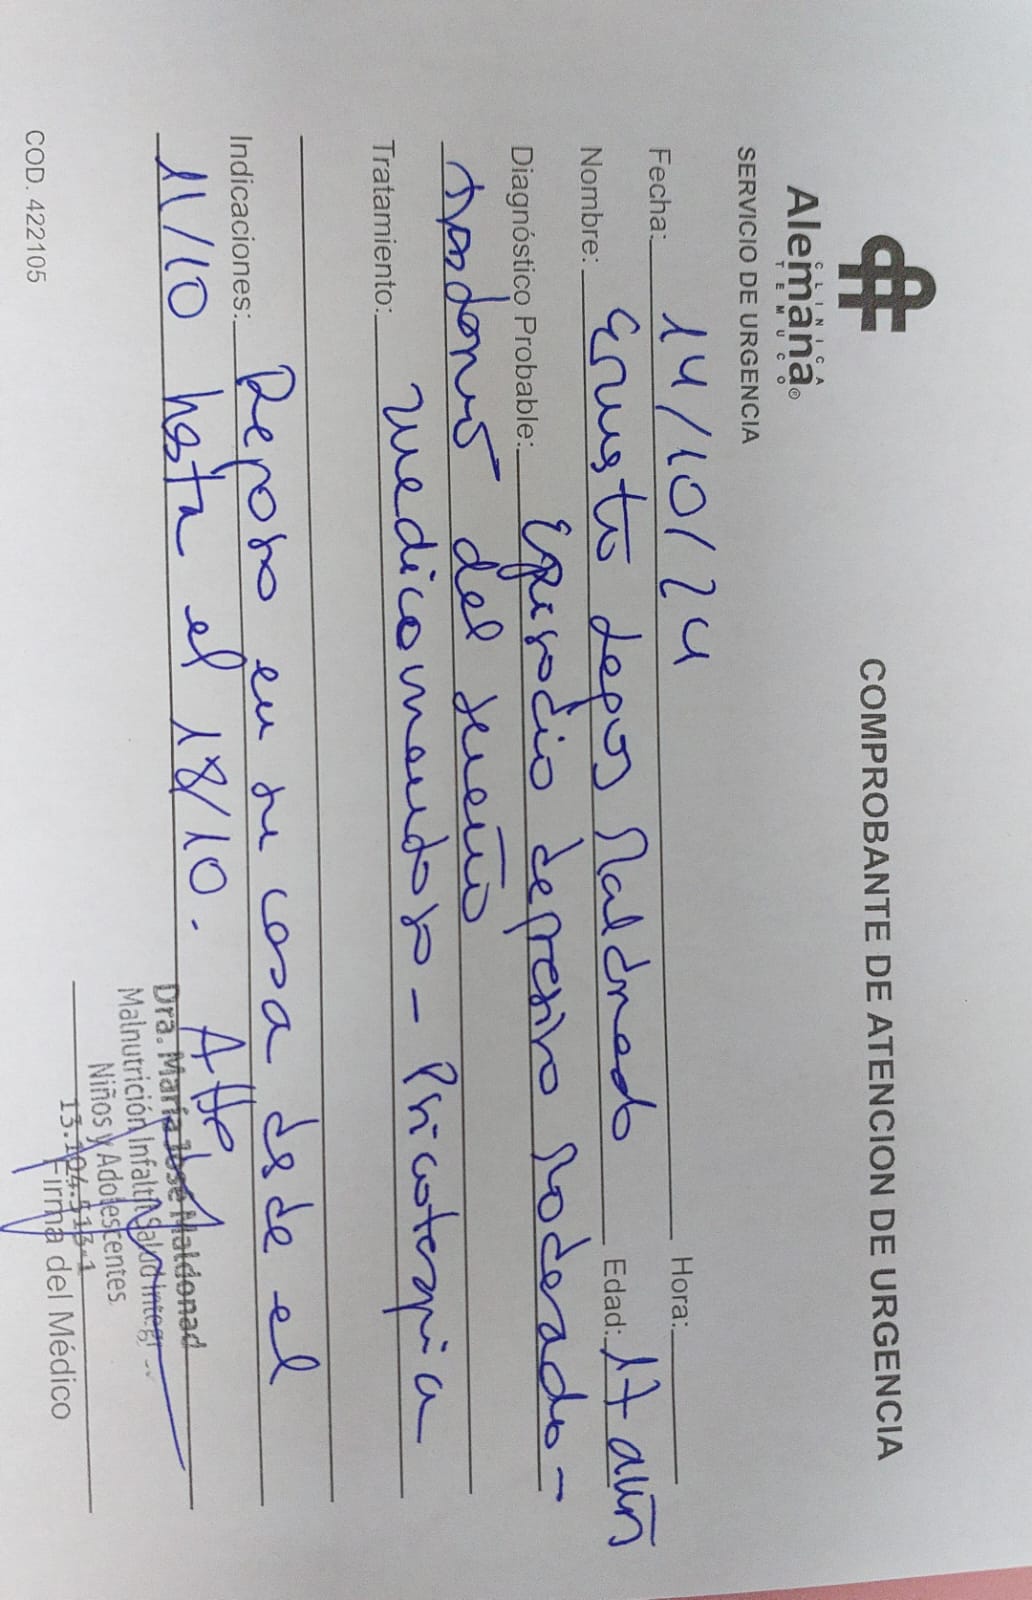 CLINICA
Alemana®
TEMUCO
SERVICIO DE URGENCIA
COMPROBANTE DE ATENCION DE URGENCIA
Fecha: 14/10/24 Hora:
Nombre: Ernesto Maldonado Edad: 17 años
Diagnóstico Probable: Episodio depresivo Moderado -
del sueño
Tratamiento: Medicamentoso - Psicoterapia
Indicaciones: Reposo en su casa desde el
11/10 hasta el 18/10.
Dra. María José Maldonad
Malnutrición Infaltil Salud Integr
Niños y Adolescentes
13.104.513-1
Firma del Médico
COD. 422105